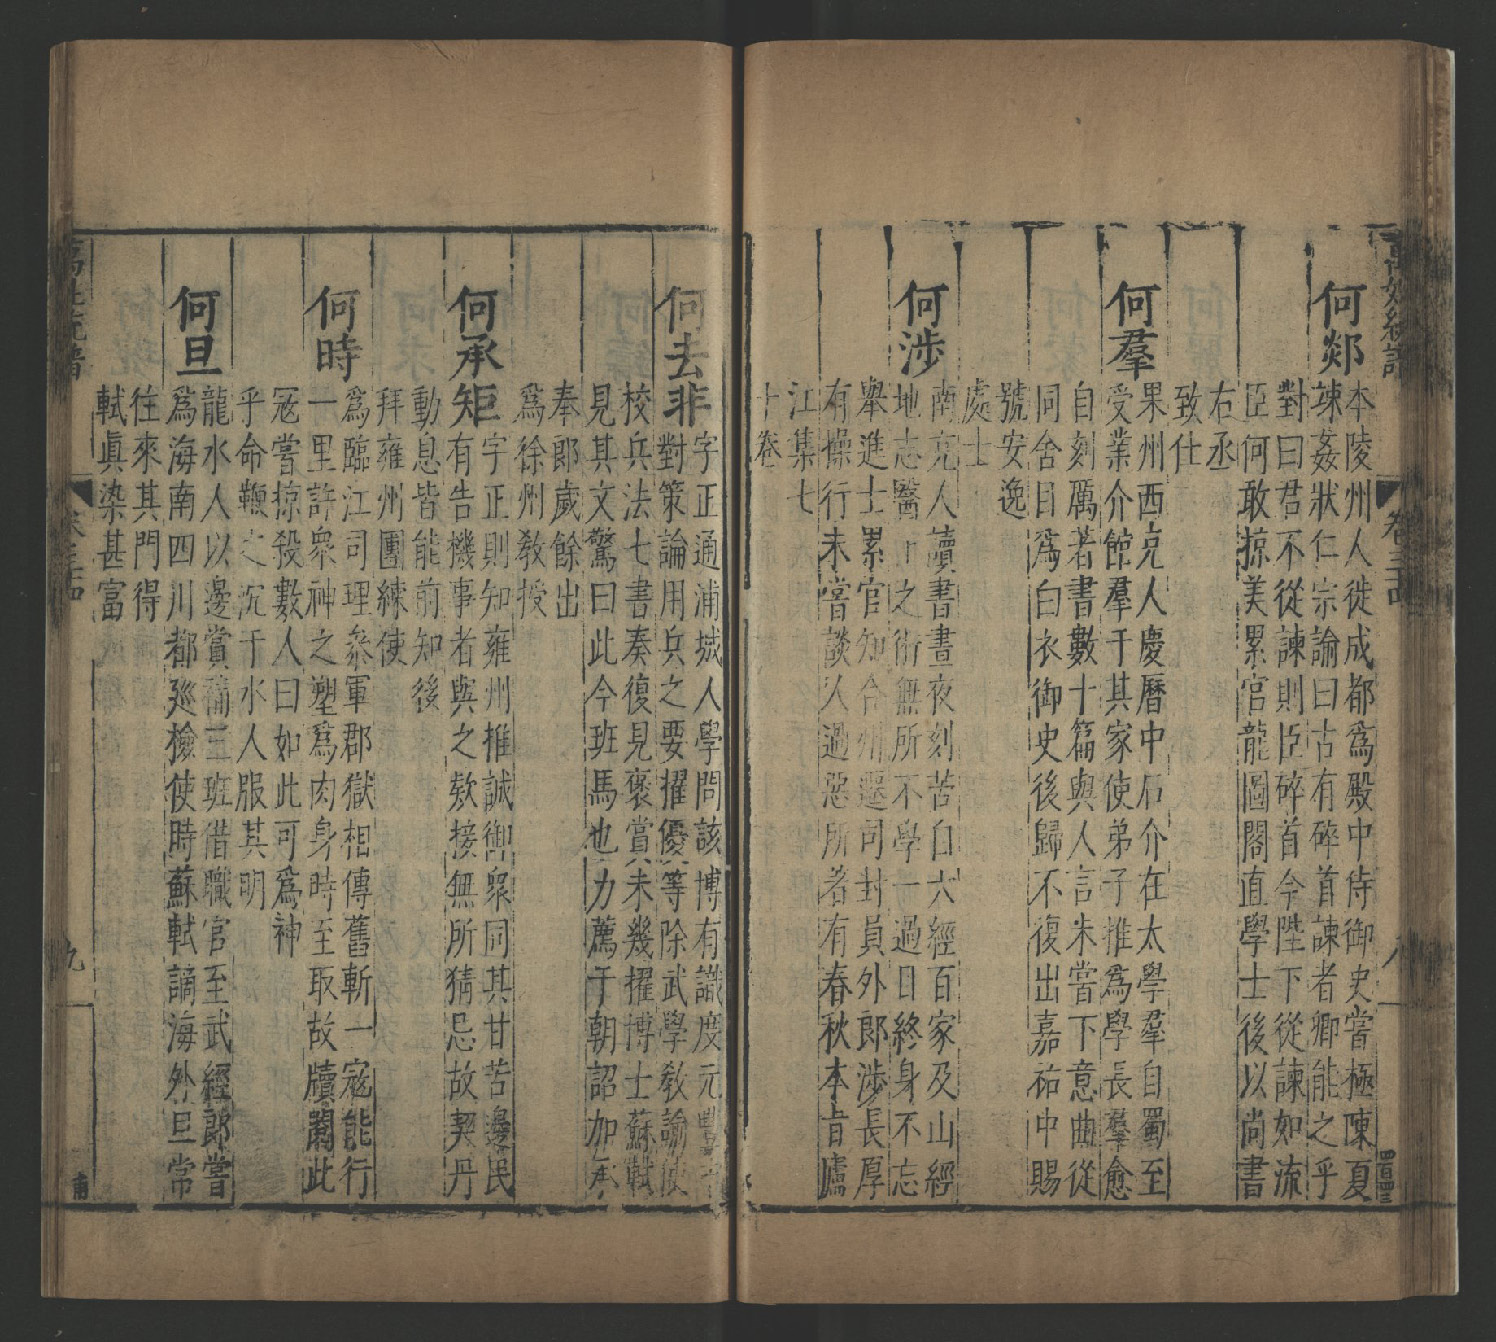 萬姓統譜
卷三十四
八
何郯
本陵州人徙成都爲殿中侍御史嘗極陳夏
竦姦狀仁宗諭曰古有碎首諫者卿能之乎
對曰君不從諫則臣碎首今陛下從諫如流
臣何敢掠美累官龍圖閣直學士後以尚書
右丞
致仕
何羣
果州西充人慶曆中石介在太學羣自蜀至
受業介館羣于其家使弟子推爲學長羣愈
自刻厲著書數十篇與人言未嘗下意曲從
同舍目爲白衣御史後歸不復出嘉祐中賜
號安逸
處士
何涉
南充人讀書晝夜刻苦自六經百家及山經
地志醫卜之術無所不學一過目終身不忘
舉進士累官知合州還司封員外郎涉長厚
有操行未嘗談人過惡所著有春秋本旨廬
江集七
十卷
何去非
字正通浦城人學問該博有識度元豐
對策論用兵之要擢優等除武學教諭使
校兵法七書奏復見褒賞未幾擢博士蘇軾
見其文驚曰此今班馬也力薦于朝詔加承
奉郎歲餘出
爲徐州教授
何承矩
字正則知雍州推誠御衆同其甘苦邊民
有告機事者與之欵接無所猜忌故契丹
動息皆能前知後
拜雍州團練使
何時
爲臨江司理叅軍郡獄相傳舊斬一寇能行
一里許衆神之塑爲肉身時至取故牘閱此
寇嘗掠殺數人曰如此可爲神
乎命鞭之沉于水人服其明
何旦
龍水人以邊賞補三班借職官至武經郎嘗
爲海南四川都廵檢使時蘇軾謫海外旦常
往來其門得
軾眞染甚富
萬姓統譜
卷三十四
九